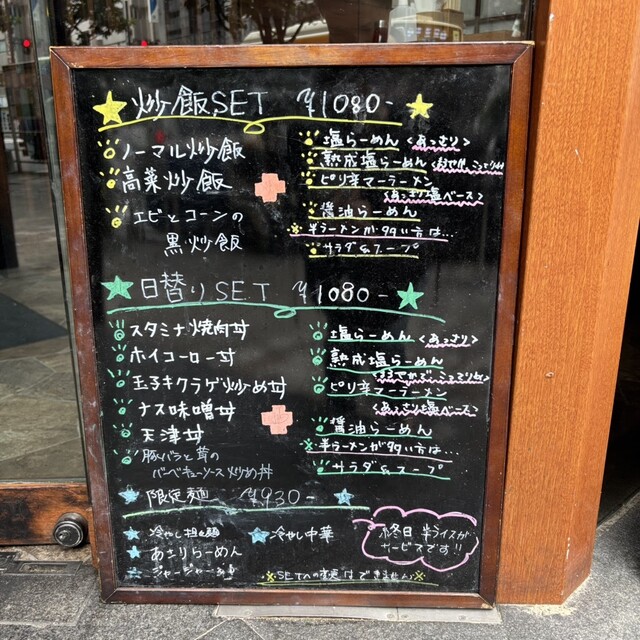 炒飯SET ¥1080-
ノーマル炒飯
高菜炒飯
エビとコーンの
黒炒飯
塩らーめん<あっさり>
熟成塩らーめん
ピリ辛マーラーメン
<あっさり塩ベース>
醤油らーめん
※半ラーメンが多い方は…
サラダ&スープ
日替りSET ¥1080-
スタミナ焼肉丼
ホイコーロー丼
玉子キクラゲ炒め丼
ナス味噌丼
天津丼
豚バラと茸の
バーベキューソース炒め丼
塩らーめん<あっさり>
熟成塩らーめん
ピリ辛マーラーメン
<あっさり塩ベース>
醤油らーめん
※半ラーメンが多い方は…
サラダ&スープ
限定麺 ¥930-
冷やし担々麺
あさりらーめん
ジャージャー麺
冷やし中華
終日半ライスが
サービスです!!
※SETへの変更はできません※